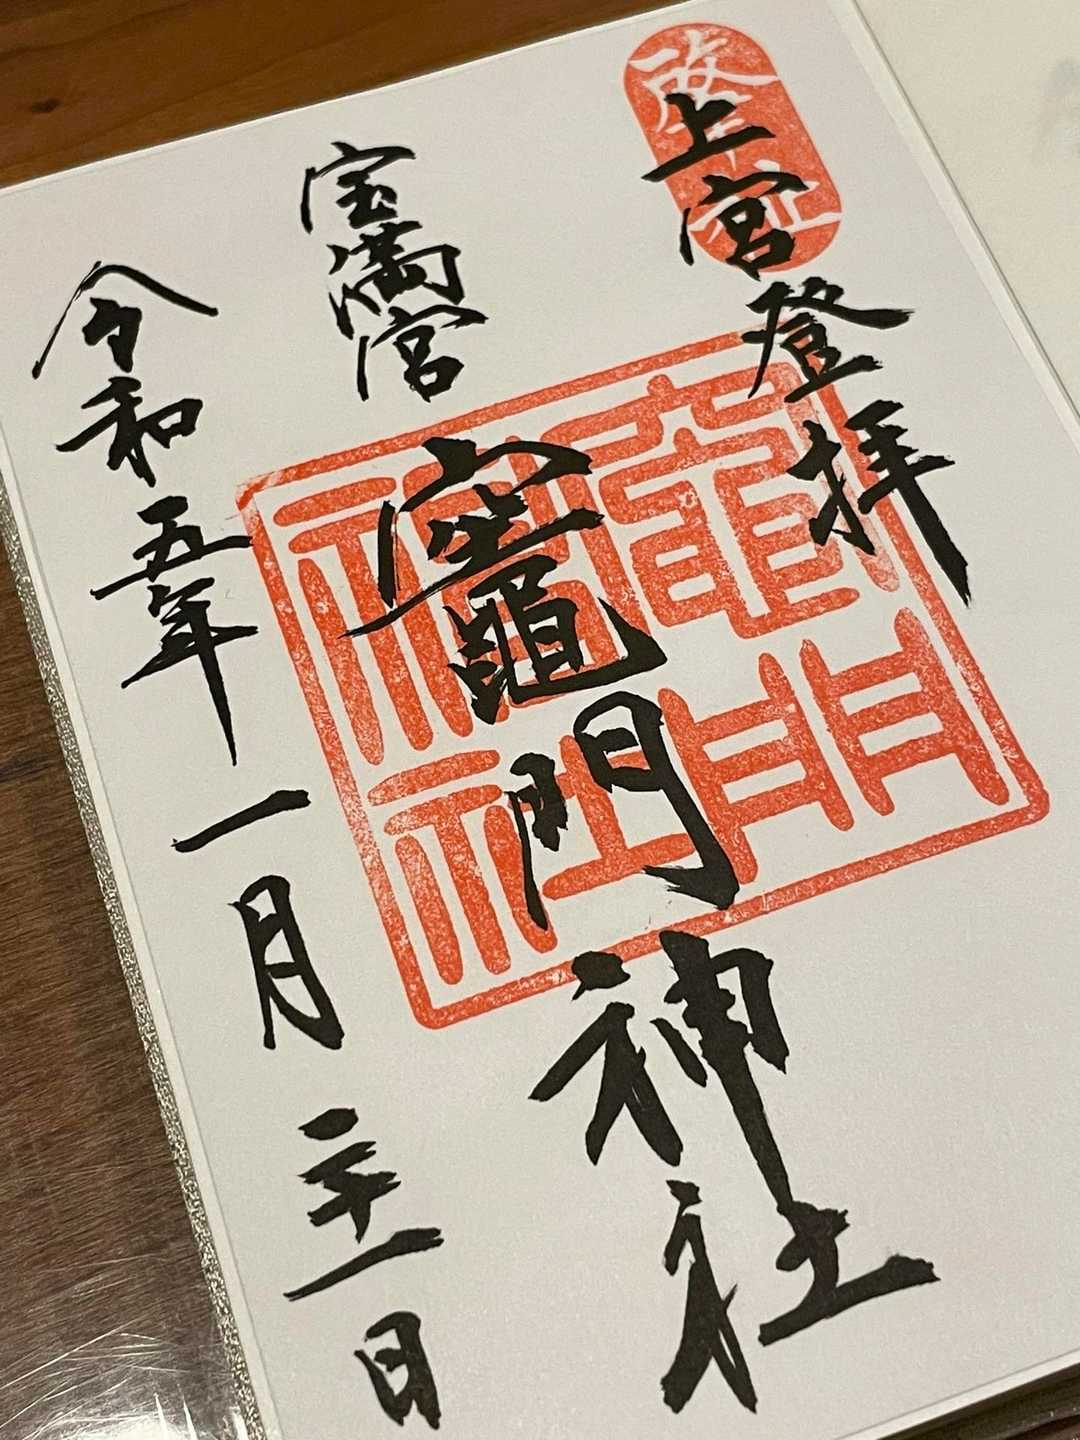 上宮登拝
竈門神社
竈門
神社
宝満宮
令和五年一月二十一日